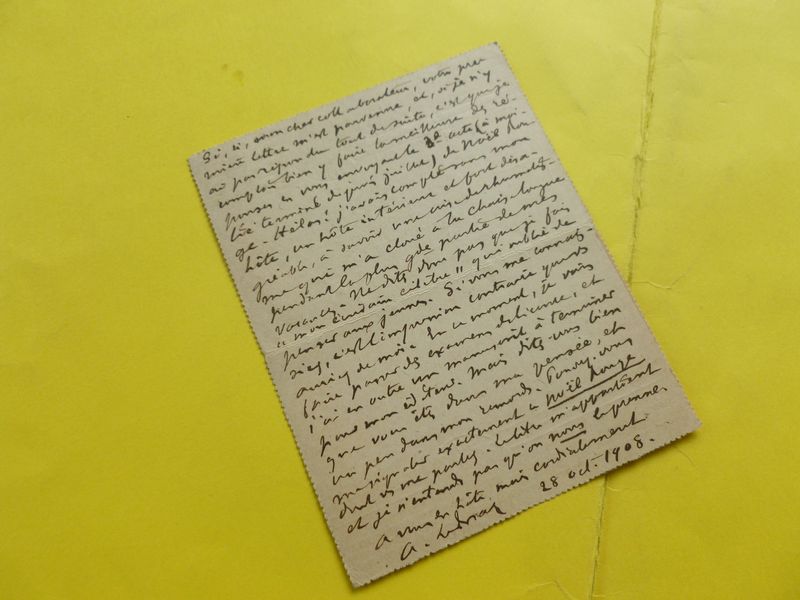 Si, si, mon cher collaborateur, votre pre
mière lettre m'est parvenue, et, si je n'y
ai pas répondu tout de suite, c'est que je
comptais bien y faire la meilleure des ré-
ponses en vous envoyant le 3e acte (à moi-
tié terminé depuis juillet) de Noël Rou-
ge. Hélas! j'avais compté sans mon
hôte, un hôte intérieur et fort désa-
gréable, à savoir une crise de rhumatis-
me qui m'a cloué à la chaise longue
pendant la plus gde partie de mes
vacances. Ne dites donc pas que je fais
"mon écrivain célèbre" qui oublie de
penser aux jeunes. Si vous me connais-
siez, c'est l'impression contraire que vs
auriez de moi. En ce moment, je vais
faire passer des examens de licence, et
j'ai en outre un manuscrit à terminer
pour mon éditeur. Mais dites-vous bien
que vous êtes dans ma pensée, et
un peu dans mon remords. Pouvez-vous
me signaler exactement le Noël Rouge
dont vs me parlez. Le titre m'appartient
et je n'entends pas qu'on nous le prenne.
A vous en hâte mais cordialement.
28 oct. 1908.
A.